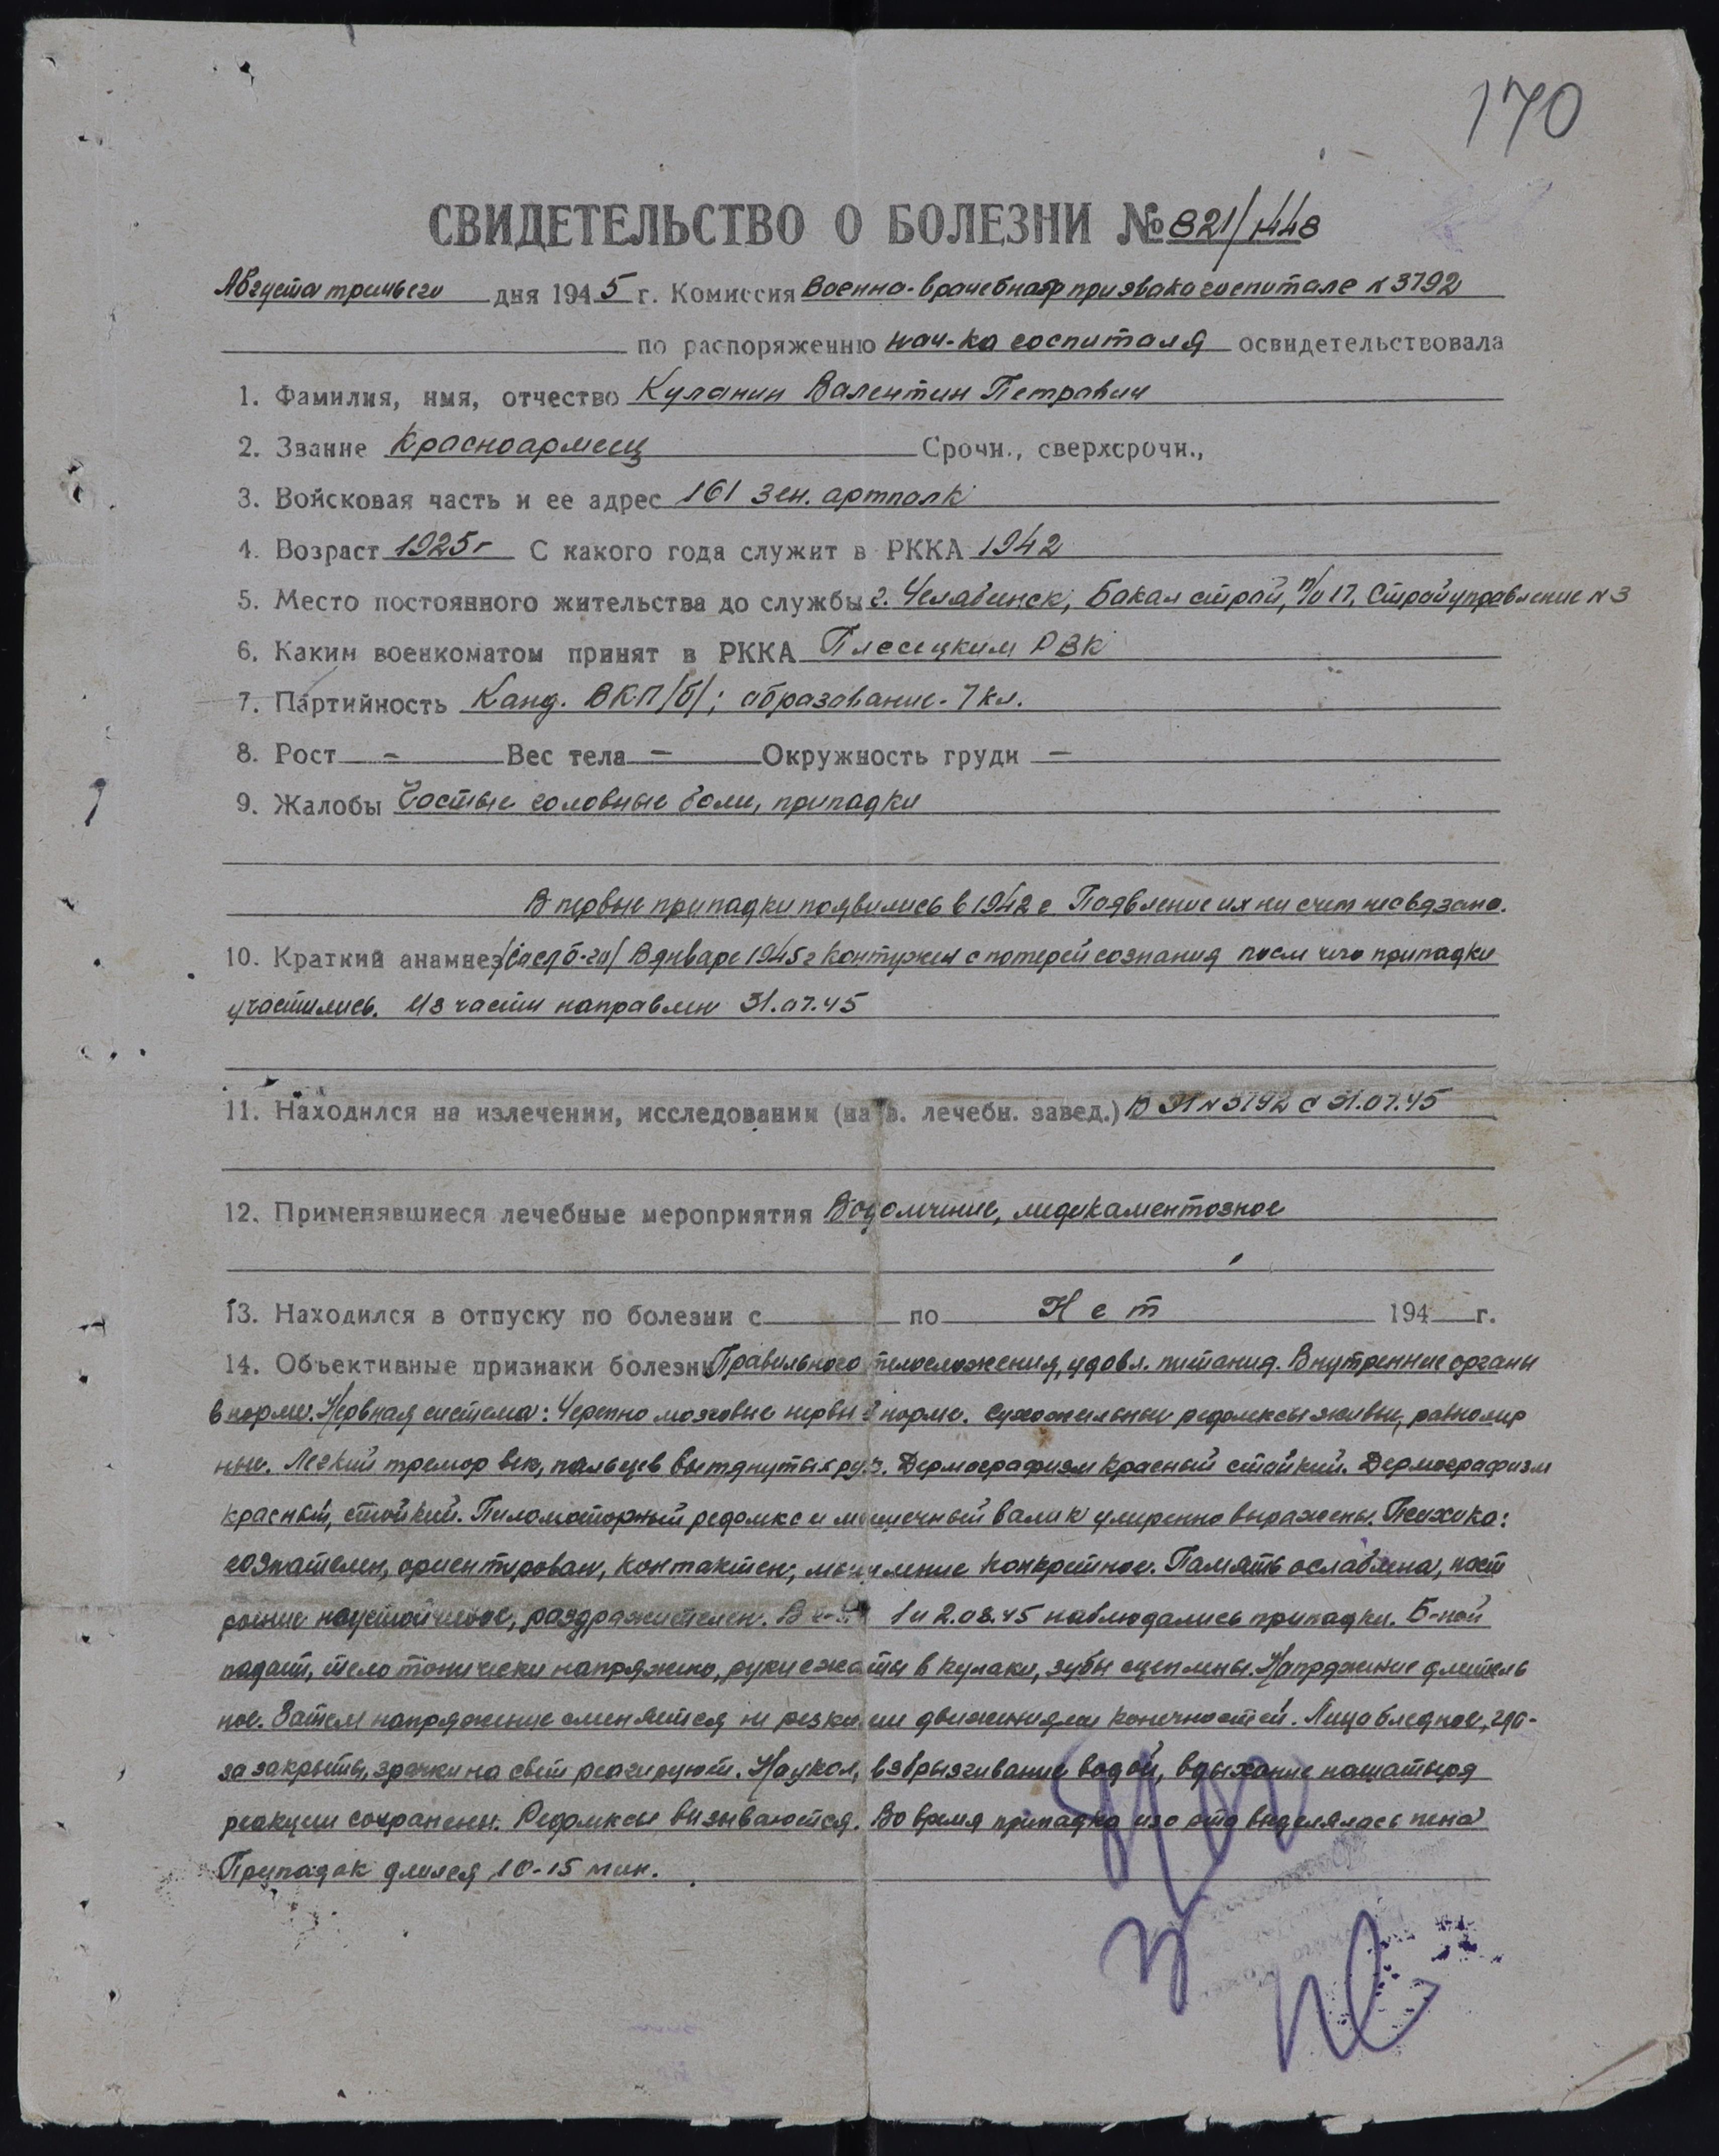 170
СВИДЕТЕЛЬСТВО О БОЛЕЗНИ № 821/1448
Августа третьего дня 1945 г. Комиссия Военно-врачебная при эвакогоспитале N 3792
по распоряжению нач-ка госпиталя освидетельствовала
1. Фамилия, имя, отчество Куланин Валентин Петрович
2. Звание Красноармеец Срочн., сверхсрочн.,
3. Войсковая часть и ее адрес 161 зен. артполк
4. Возраст 1925г С какого года служит в РККА 1942
5. Место постоянного жительства до службы г. Челябинск, Бакал строй, п/о 17, Стройуправление N 3
6. Каким военкоматом принят в РККА Плесецким РВК
7. Партийность Канд. ВКП/б/; образование - 7 кл.
8. Рост - Вес тела - Окружность груди -
9. Жалобы Частые головные боли, припадки
Впервые припадки появились в 1942 г. Появление их ни с чем не связано.
10. Краткий анамнез /со сл б-го/ В январе 1945 г контужен с потерей сознания после чего припадки
участились. Из части направлен 31.07.45
11. Находился на излечении, исследовании (назв. лечебн. завед.) В ЭГ N 3792 с 31.07.45
12. Применявшиеся лечебные мероприятия Водолечение, медикаментозное
13. Находился в отпуску по болезни с по Нет 194 г.
14. Объективные признаки болезни Правильного телосложения, удовл. питания. Внутренние органы
в норме. Нервная система: Черепно мозговые нервы в норме. Сухожильные рефлексы живые, равномер
ные. Легкий тремор век, пальцев вытянутых рук. Дермографизм красный стойкий. Дермографизм
красный, стойкий. Пиломоторный рефлекс и мышечный валик умеренно выражены. Психика:
сознателен, ориентирован, контактен, мышление конкретное. Память ослаблена, наст
роение неустойчивое, раздражителен. В 1 и 2.08.45 наблюдались припадки. Б-ной
падает, тело тонически напряжено, руки сжаты в кулаки, зубы сцеплены. Напряжение длитель
ное. Затем напряжение сменяется не резкими движениями конечностей. Лицо бледное, гла-
за закрыты, зрачки на свет реагируют. На укол, взбрызгивание водой, вдыхание нашатыря
реакции сохранены. Рефлексы вызываются. Во время припадка изо рта выделялась пена
Припадок длился 10-15 мин.